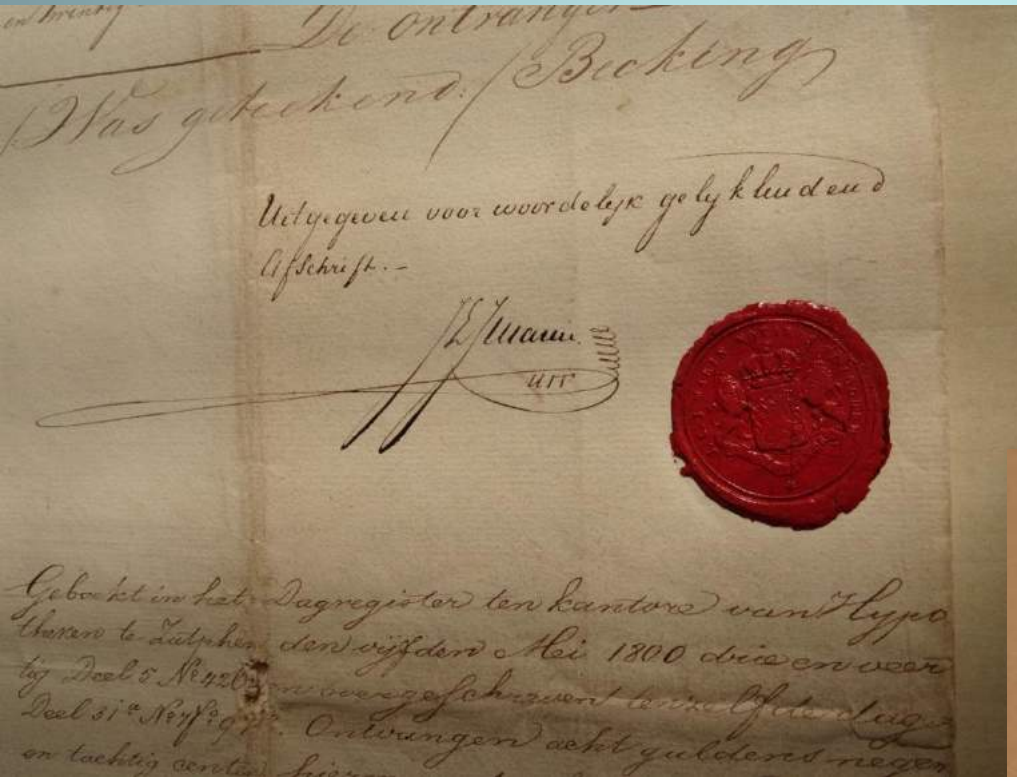 en twintig
De ontvanger
/Was geteekend:/ Becking
Uitgegeven voor woordelyk gelykluidend
Afschrift.-
Geboekt in het Dagregister ten kantore van Hypo
theken te Zutphen den vyfden Mei 1800 drie en veer
tig Deel 5 No 426 en overgeschreven ten zelfde dage
Deel 31
Ontvangen acht guldens negen
en tachtig cents